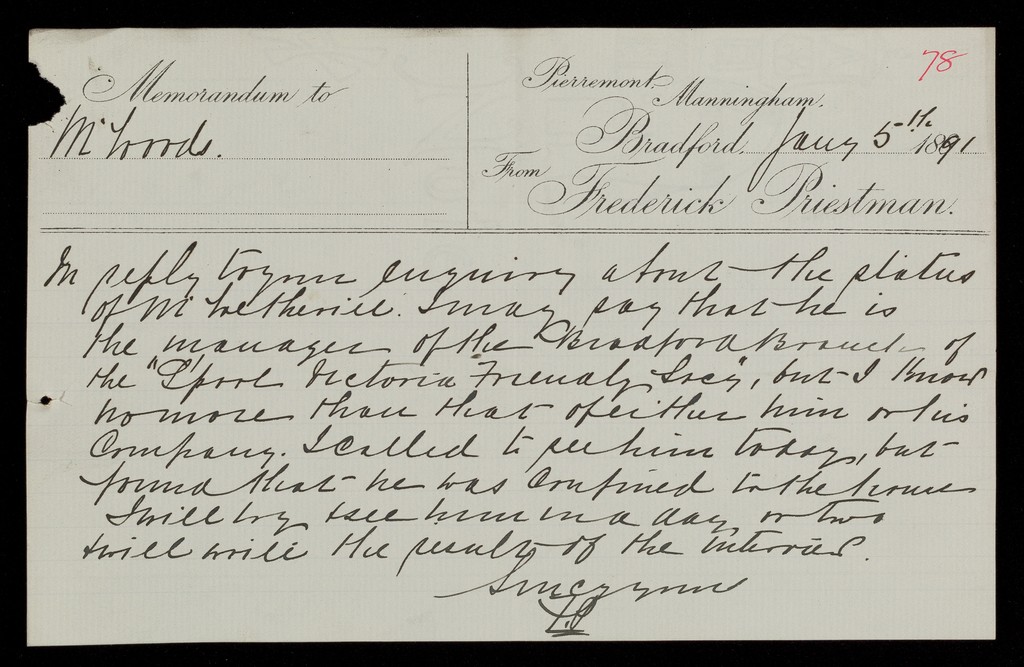 78
Memorandum to
Mr Woods.
Pierremont,
Manningham.
Bradford, Jany 5th 1891
From
Frederick Priestman.
In reply to your enquiry about the status
of Mr Wetherill. I may say that he is
the manager of the Bradford Branch of
the "L'pool Victoria Friendly Socy", but I know
no more than that of either him or his
Company. I called to see him today, but
found that he was confined to the house
I will try & see him in a day or two
& will write the result of the interview.
Sincy yours
F.P